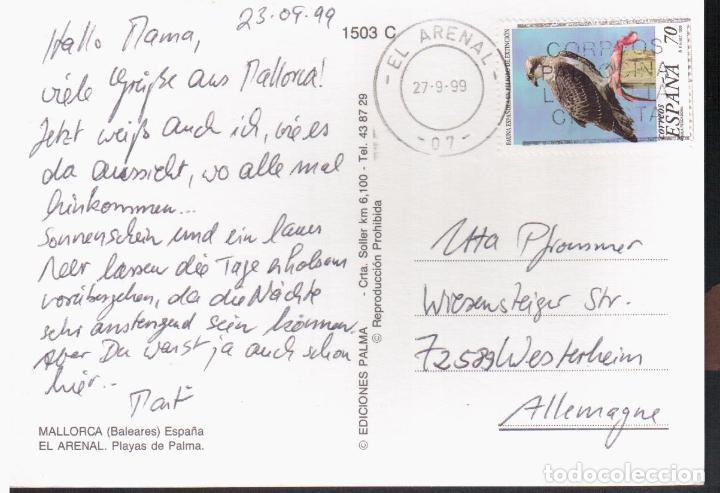 23.09.99
Hallo Mama,
viele Grüße aus Mallorca!
Jetzt weiß auch ich, wie es
da aussieht, wo alle mal
hinkommen...
Sonnenschein und ein laues
Meer lassen die Tage erholsam
vorübergehen, da die Nächte
sehr anstrengend sein können.
Aber Du warst ja auch schon
hier...
MALLORCA (Baleares) España
EL ARENAL. Playas de Palma.
1503 C
© EDICIONES PALMA - Crta. Soller km 6,100 - Tel. 43 87 29
© Reproducción Prohibida
- EL ARENAL -
27-9-99
- 07 -
CORREOS
FAUNA ESPAÑOLA EN PELIGRO DE EXTINCIÓN
70
correos
ESPAÑA
Utta Pfrommer
Wiesensteiger Str.
72589 Westerheim
Allemagne
todocoleccion.net